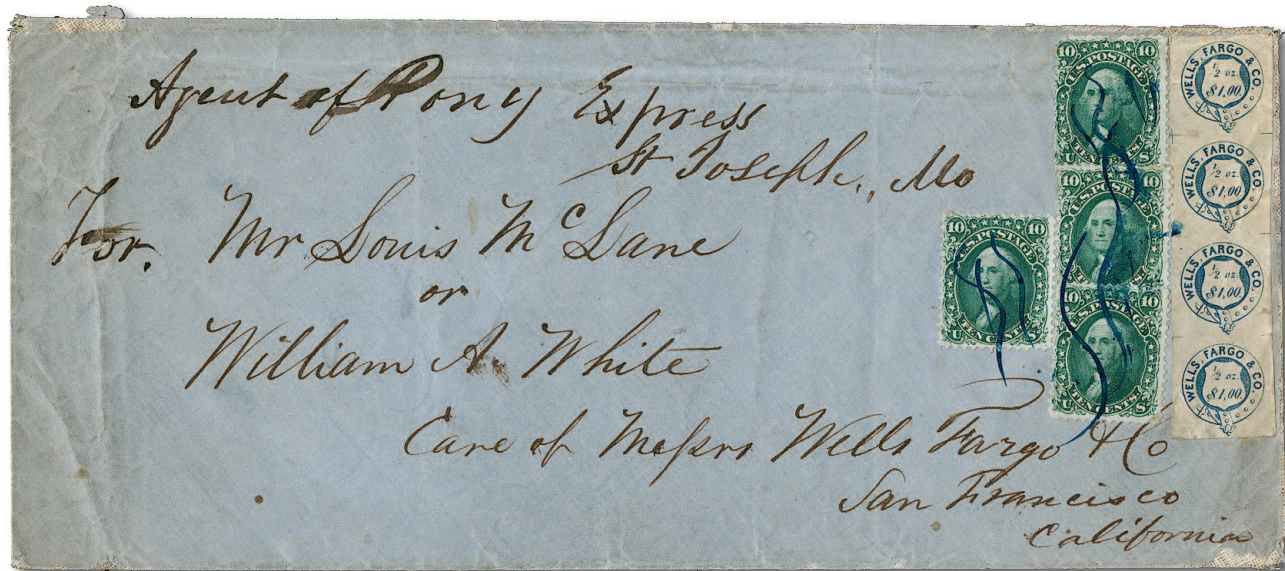 Agent of Pony Express
St Joseph, Mo
For. Mr Louis McLane
or
William A. White
Care of Messrs Wells Fargo & Co
San Francisco
California
10 10
U.S. POSTAGE
TEN CENTS
U S
10 10
U.S. POSTAGE
10 10
U.S. POSTAGE
TEN CENTS
U S
10 10
U.S. POSTAGE
TEN CENTS
U S
WELLS, FARGO & CO.
1/2 oz.
$1,00.
WELLS, FARGO & CO.
1/2 oz.
$1,00.
WELLS, FARGO & CO.
1/2 oz.
$1,00.
WELLS, FARGO & CO.
1/2 oz.
$1,00.